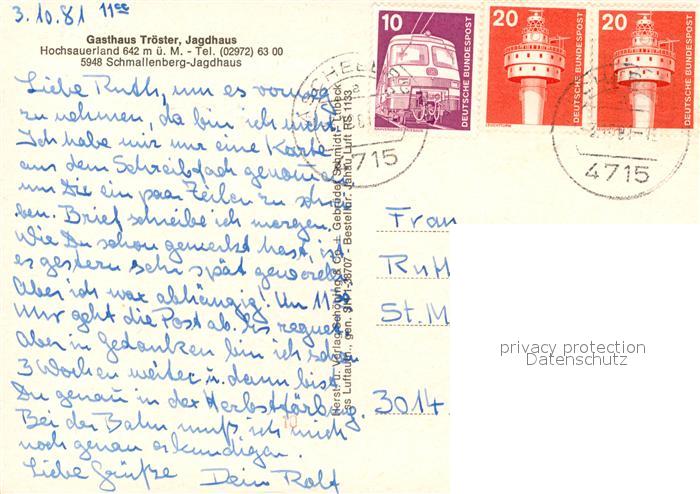 3.10.81 11⁰⁰
Gasthaus Tröster, Jagdhaus
Hochsauerland 642 m ü. M. - Tel. (02972) 63 00
5948 Schmallenberg-Jagdhaus
Liebe Ruth, um es vorweg
zu nehmen da bin ich nicht.
Ich habe mir nur eine Karte
aus dem Schreibfach genommen
um Dir ein paar Zeilen zu schrei-
ben. Brief schreibe ich morgen.
Wie Du schon gemerkt hast, ist
es gestern sehr spät geworden.
Aber ich war abhängig! Um 11³⁰
Uhr geht die Post ab. Es regnet.
Aber in Gedanken bin ich schon
3 Wochen weiter u. dann bist
Du genau in der Herbstfärbung.
Bei der Bahn muß ich mich
noch genau erkundigen.
Liebe Grüße Dein Rolf
Herst. u. Verlag Schöning & Co. + Gebrüder Schmidt, Lübeck
Jahau Luft RS 1133
10
DEUTSCHE BUNDESPOST
20
DEUTSCHE BUNDESPOST
20
DEUTSCHE BUNDESPOST
4715
4715
Frau
Ruth
St. M
3014
privacy protection
Datenschutz